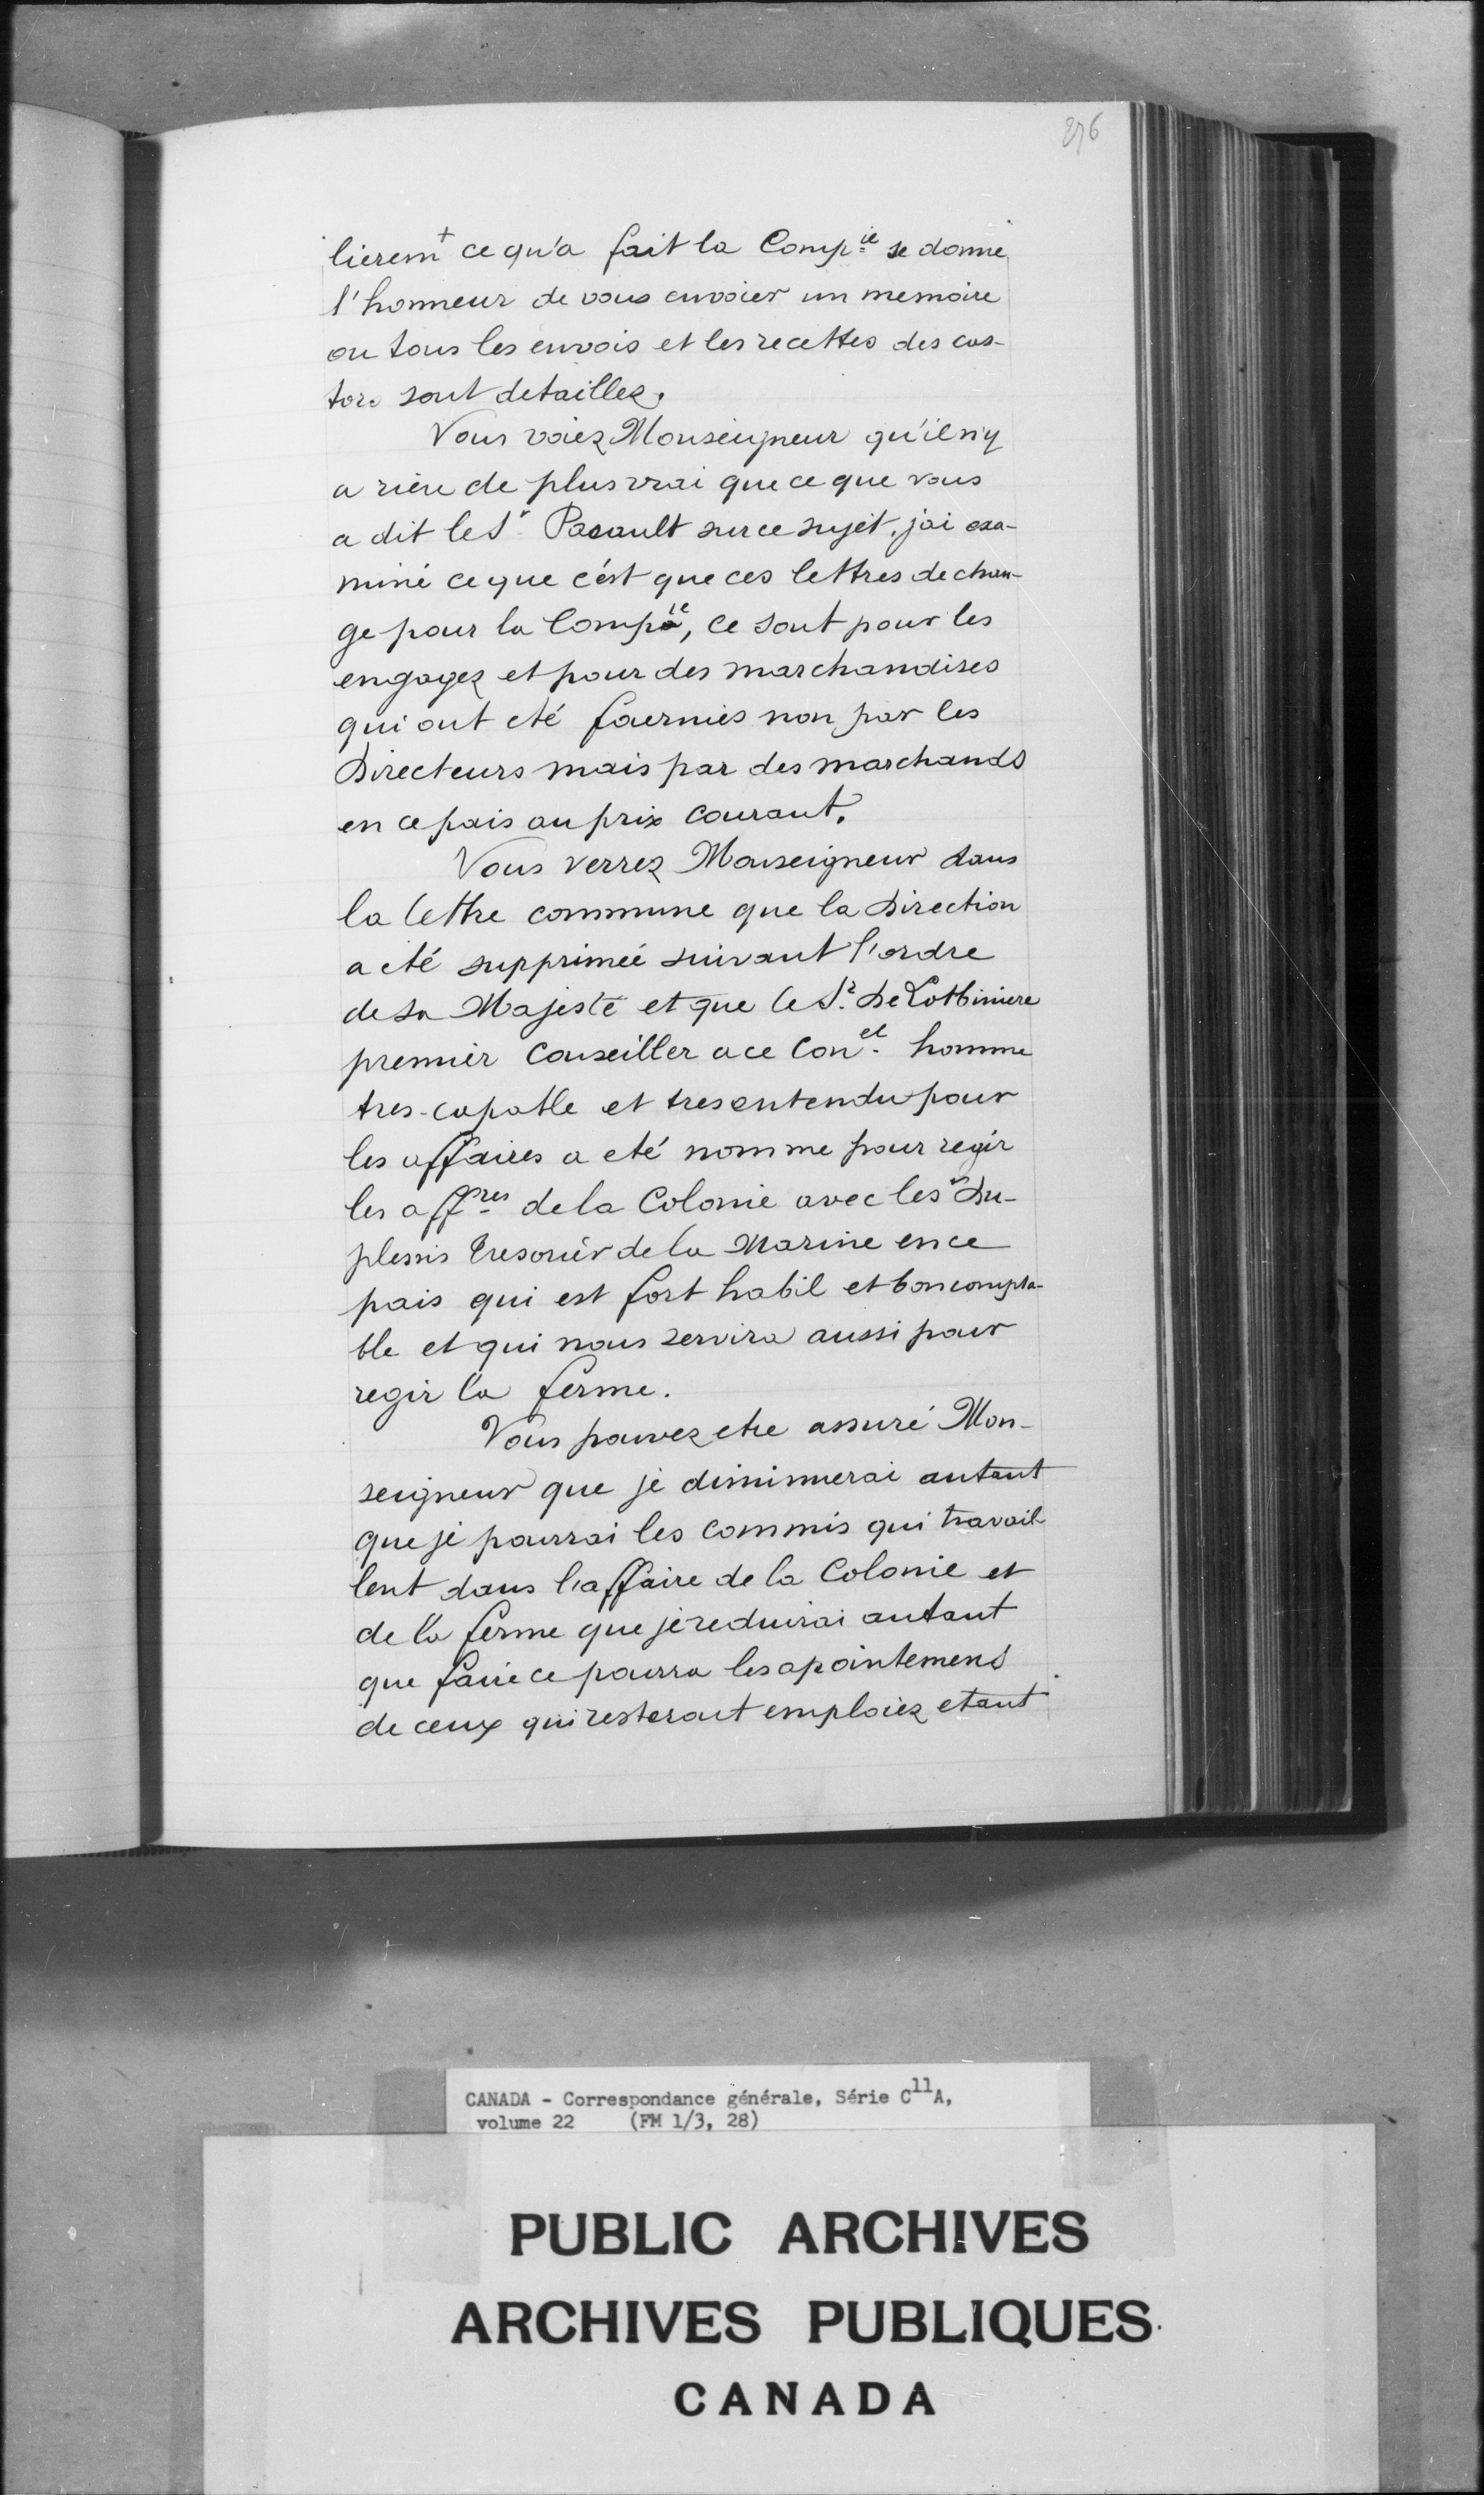 276
lierem^t ce qu'a fait la Comp^ie se donne
l'honneur de vous envoier un memoire
ou tous les envois et les recettes des cas-
tors sont detaillez.
Vous voiez Monseigneur qu'il n'y
a rien de plus vrai que ce que vous
a dit le S^r Pacault sur ce sujet, j'ai exa-
miné ce que c'est que ces lettres de chan-
ge pour la Comp^ie, ce sont pour les
engagez et pour des marchandises
qui ont eté fournies non par les
Directeurs mais par des marchands
en ce pais au prix courant.
Vous verrez Monseigneur dans
la lettre commune que la Direction
a eté suppriméé suivant l'ordre
de sa Majesté et que le S^r De Lotbiniere
premier Conseiller a ce Con^el homme
tres-capable et tres entendu pour
les affaires a eté nommé pour regir
les aff^res de la Colonie avec le S^r Du-
plessis Tresorier de la Marine en ce
pais qui est fort habil et bon compta-
ble et qui nous servira aussi pour
regir la ferme.
Vous pouvez etre assuré Mon-
seigneur que je diminuerai autant
que je pourrai les commis qui travail-
lent dans l'affaire de la Colonie et
de la ferme que je reduirai autant
que faire ce pourra les apointemens
de ceux qui resteront emploiez etant
CANADA - Correspondance générale, Série C^11A,
volume 22 (FM 1/3, 28)
PUBLIC ARCHIVES
ARCHIVES PUBLIQUES
CANADA